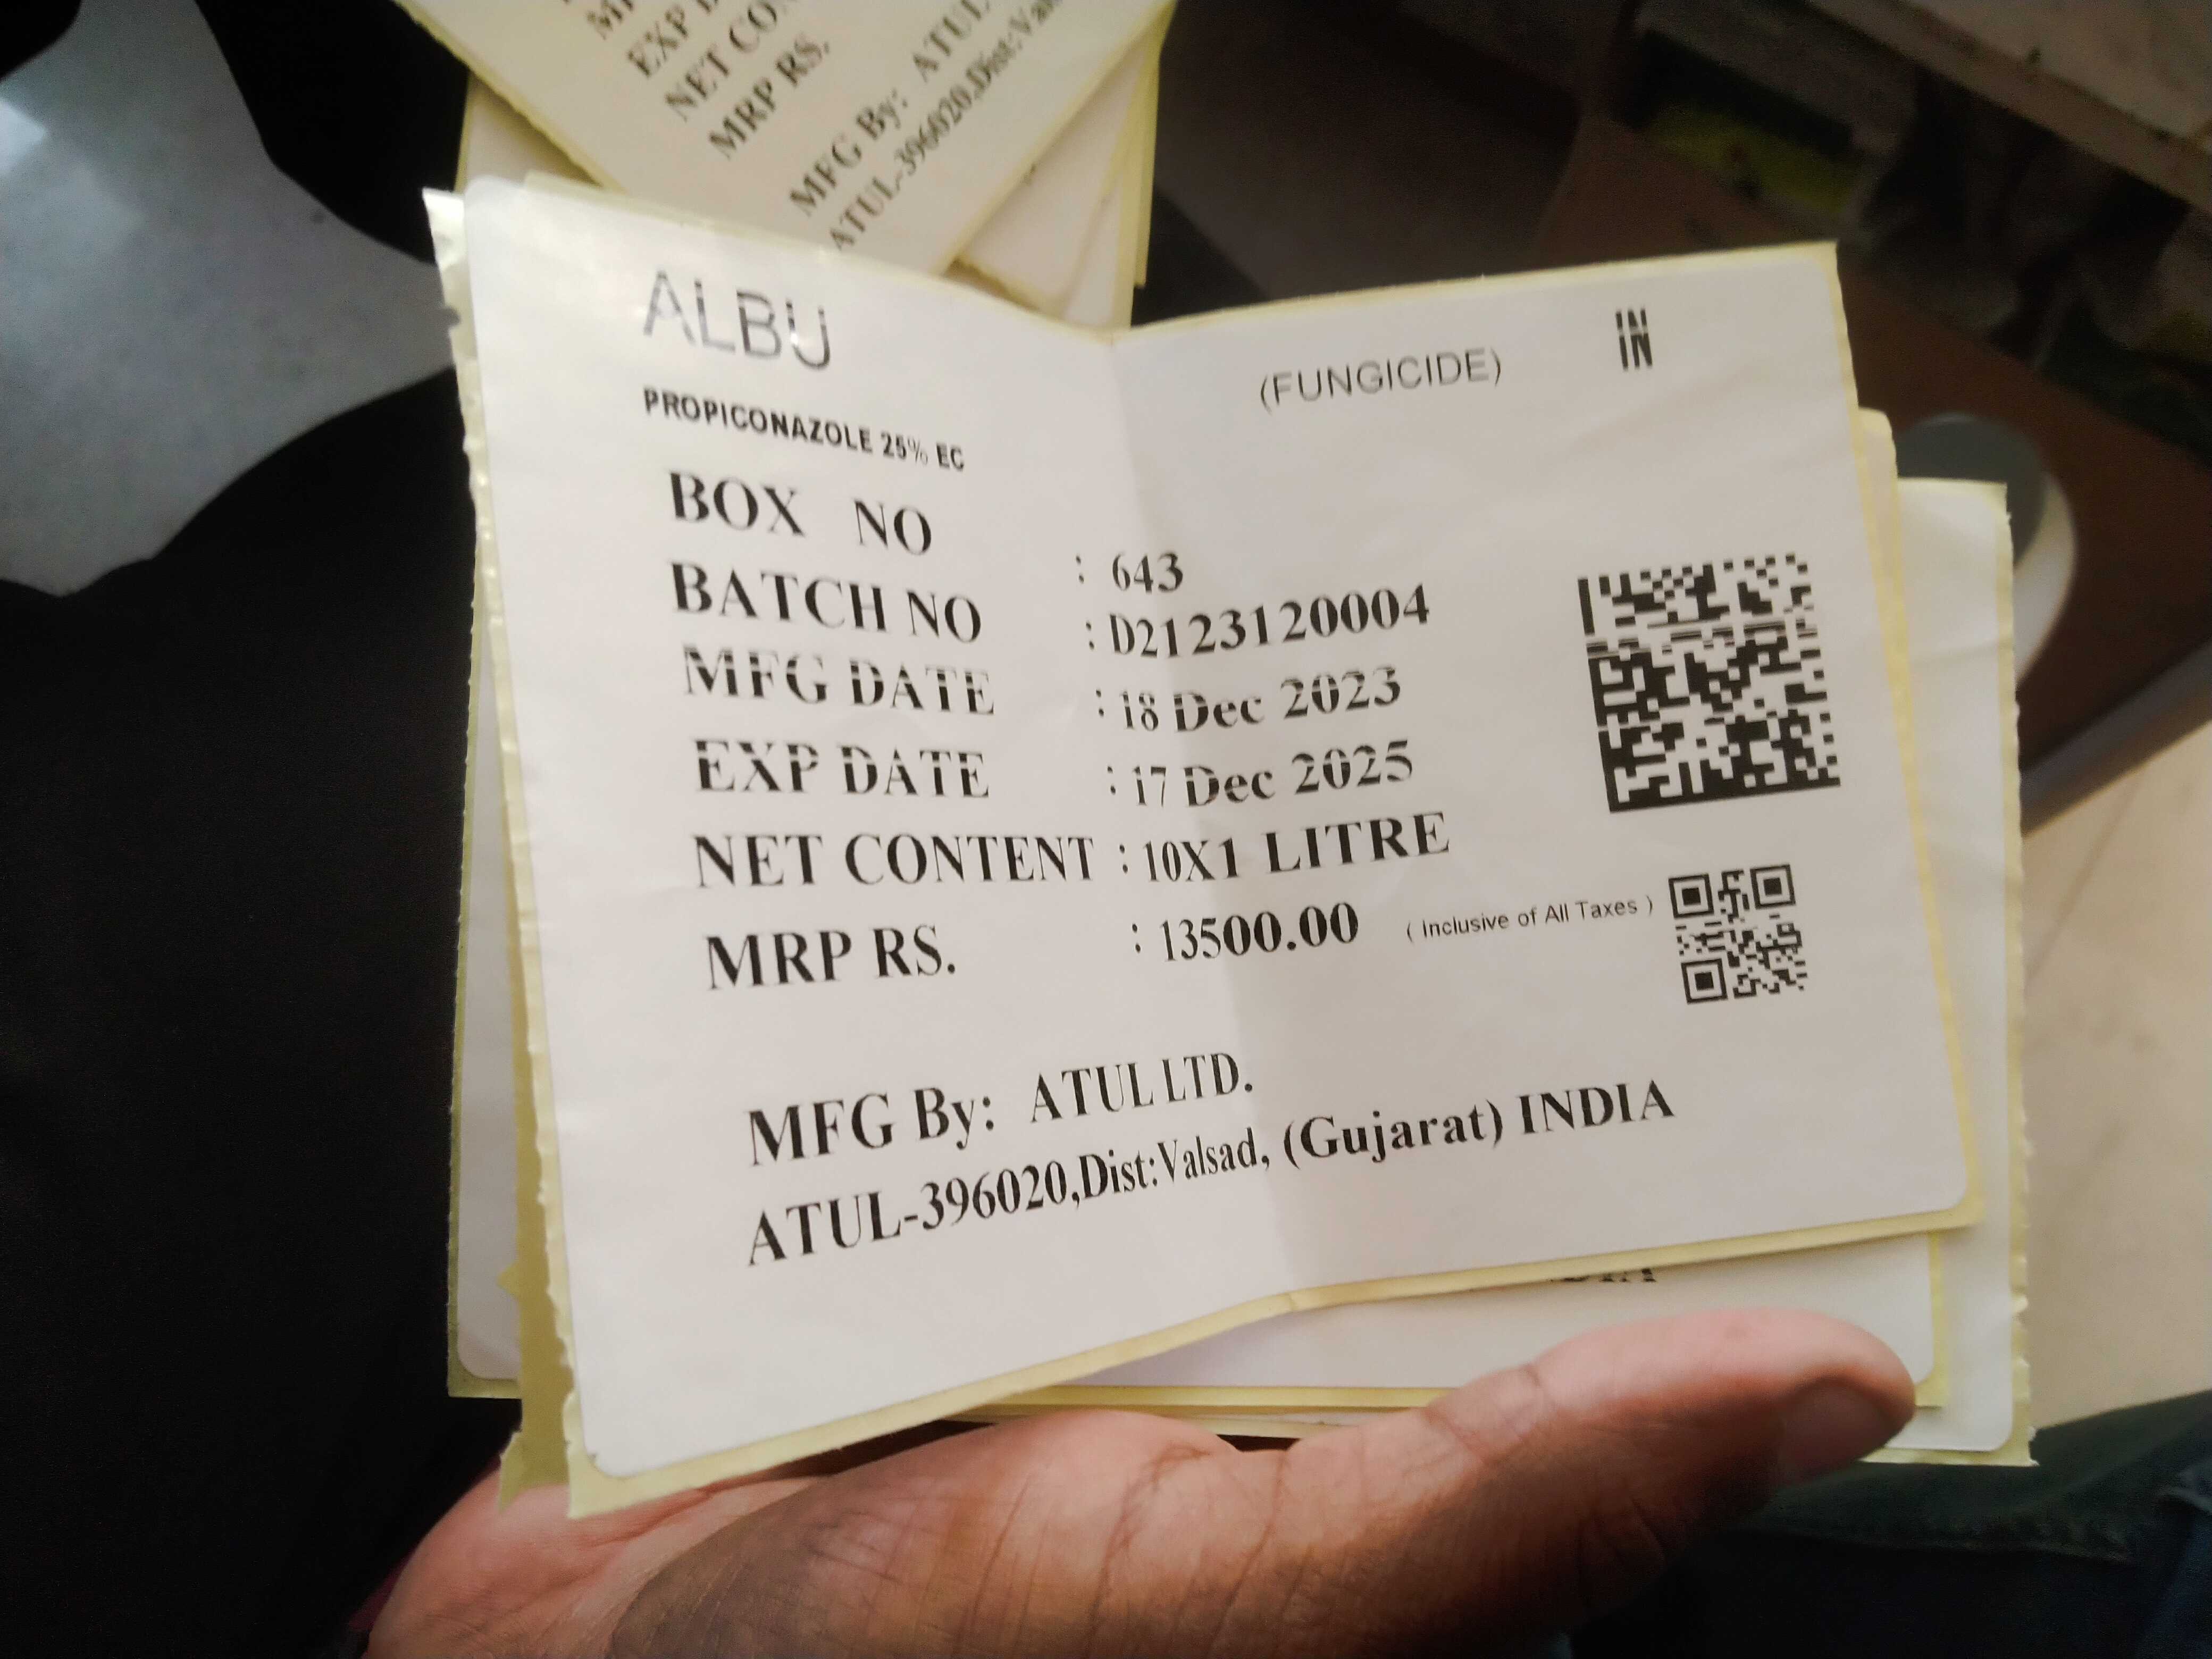 EXP D
NET CON
MRP RS.
MFG By: ATUL
ATUL-396020,Dist:Va
ALBU
(FUNGICIDE)
IN
IN
PROPICONAZOLE 25% EC
BOX NO : 643
BATCH NO : D2123120004
MFG DATE : 18 Dec 2023
EXP DATE : 17 Dec 2025
NET CONTENT : 10X1 LITRE
MRP RS. : 13500.00 ( Inclusive of All Taxes )
MFG By: ATUL LTD.
ATUL-396020,Dist:Valsad, (Gujarat) INDIA